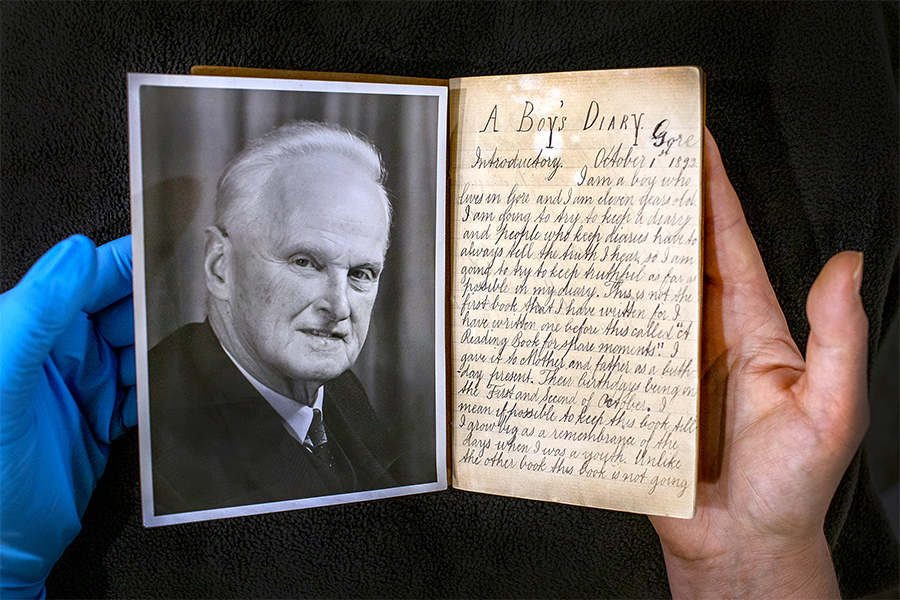 A Boy's Diary
Gore
Introductory. October 1st 1892.
I am a boy who
lives in Gore and I am eleven years old.
I am going to try to keep a diary
and people who keep diaries have to
always tell the truth I hear, so I am
going to try to keep truthful as far as
possible in my diary. This is not the
first book that I have written for I
have written one before this called "A
Reading Book for spare moments". I
gave it to Mother and father as a birth
-day present. Their birthdays being on
the First and second of October. I
mean if possible to keep this book till
I grow big as a remembrance of the
days when I was a youth. Unlike
the other book this book is not going